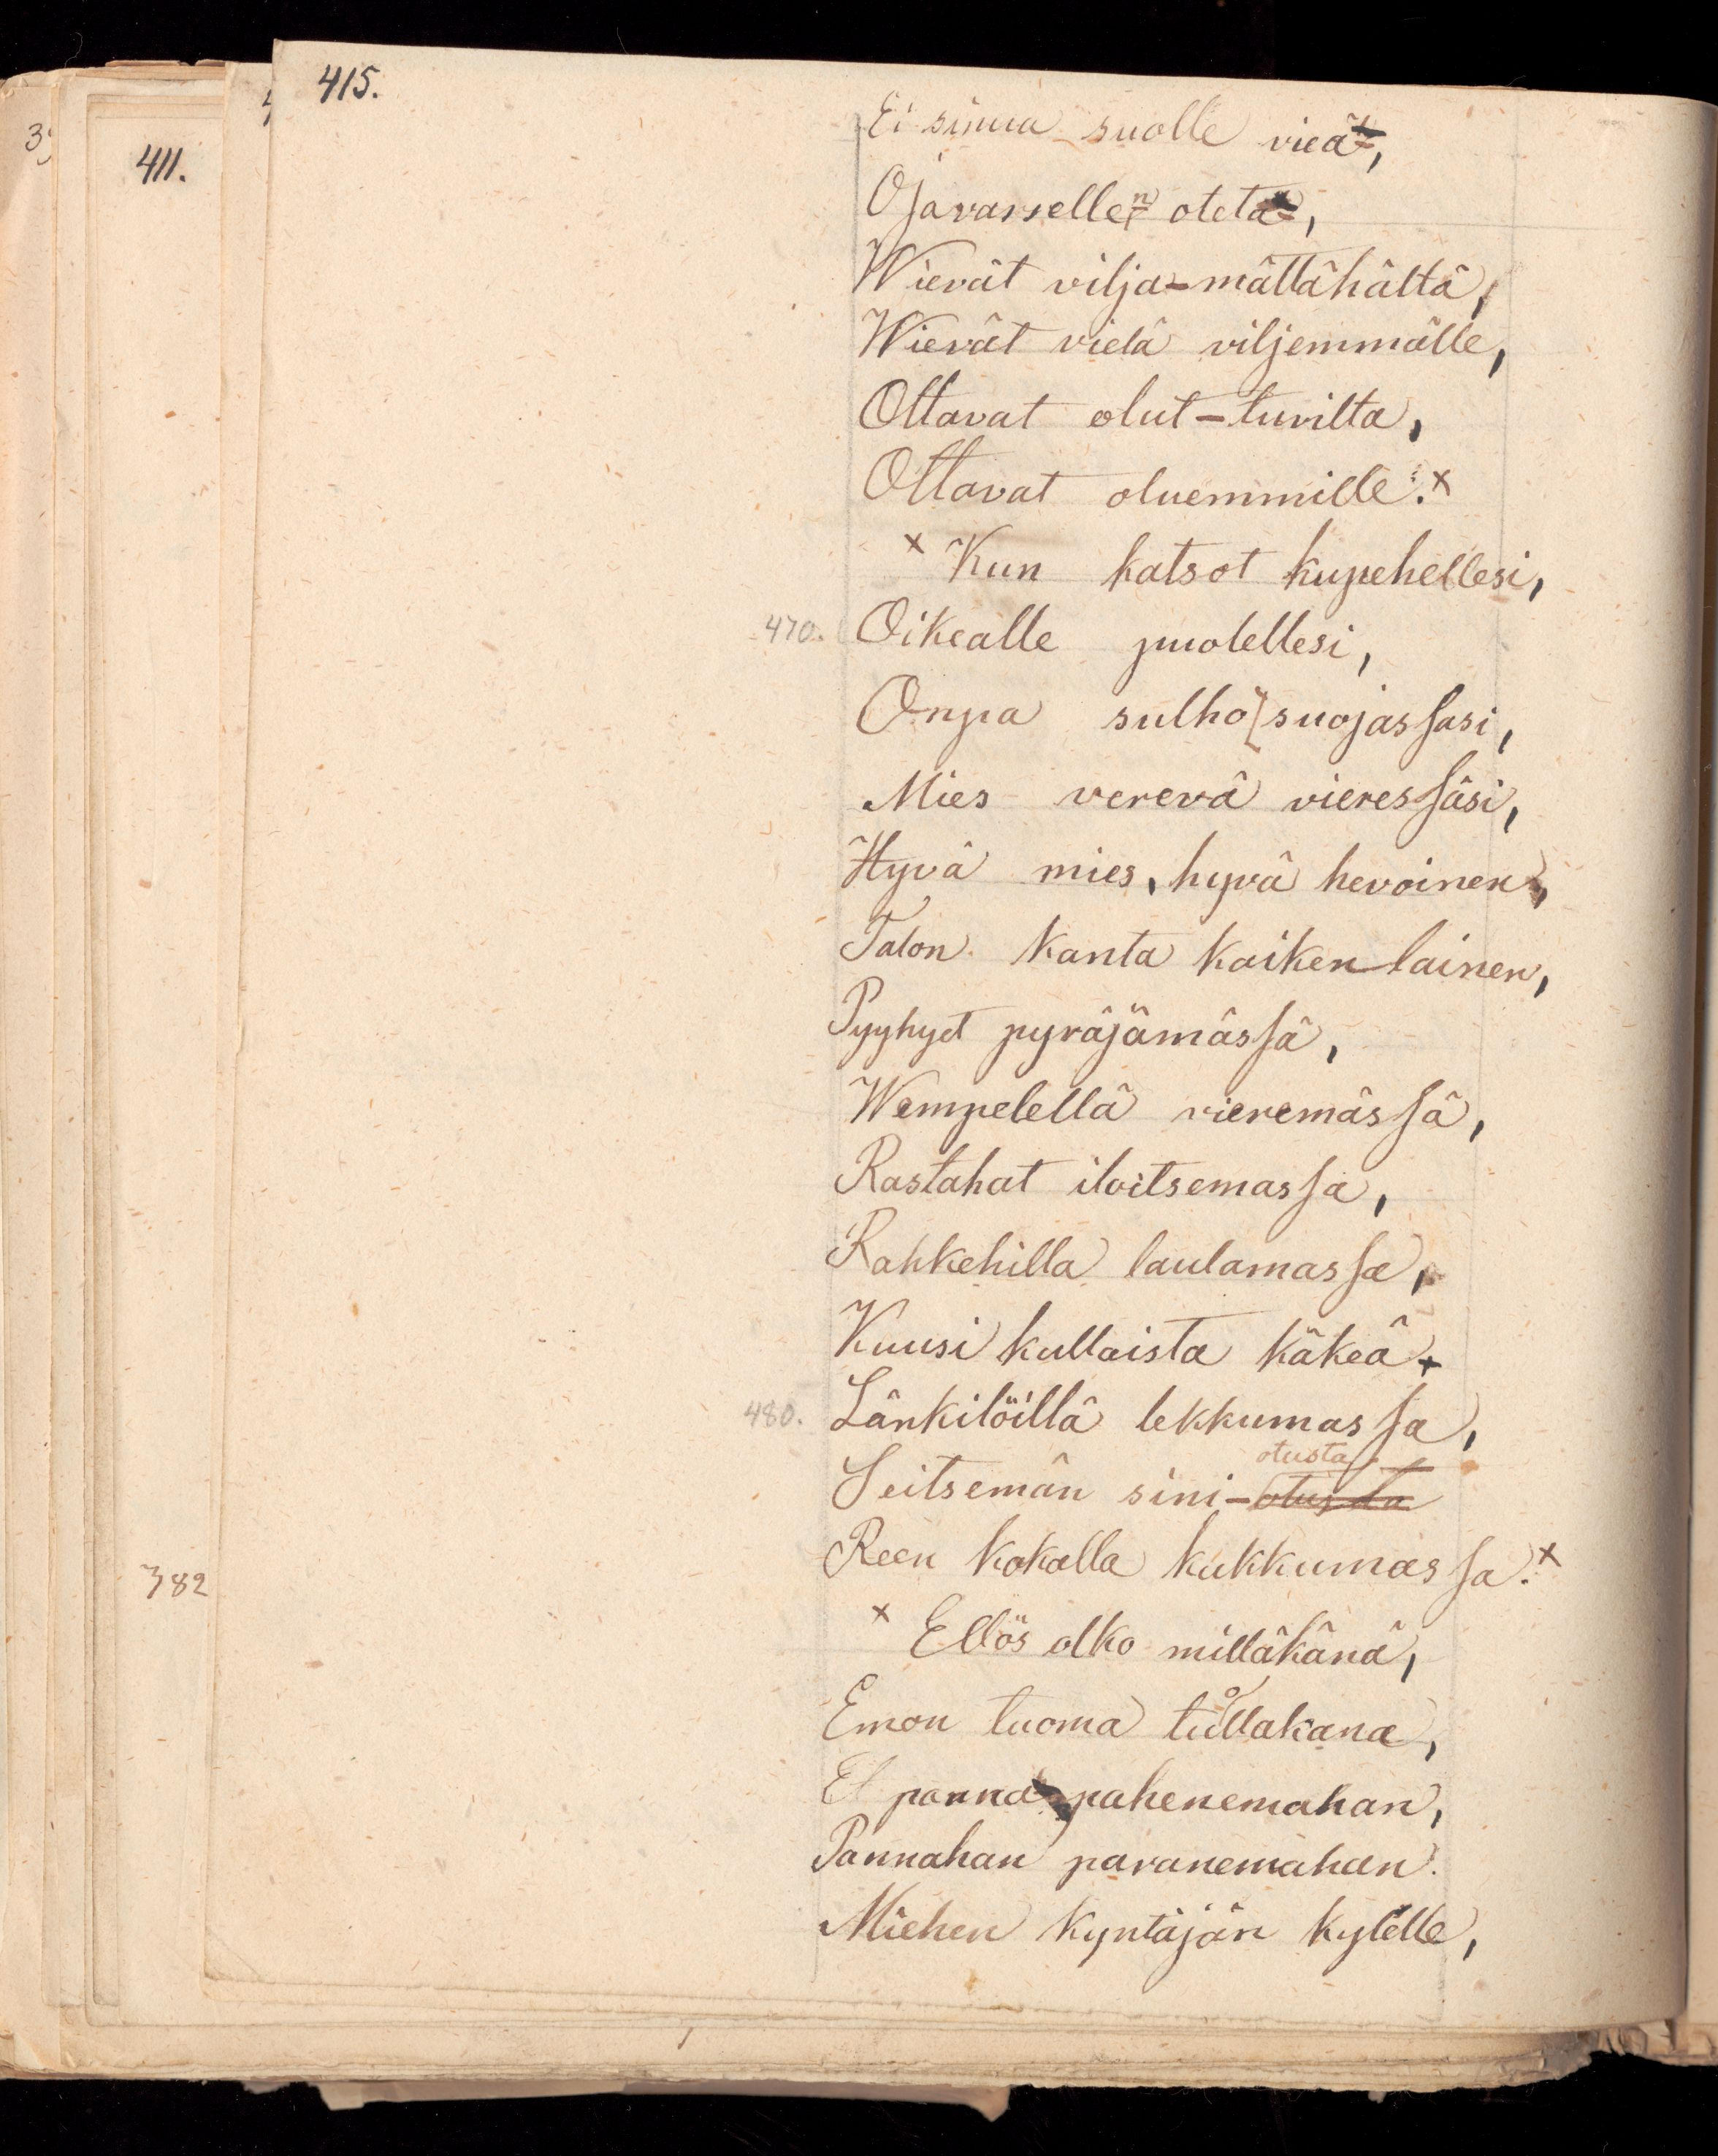 415.
411.
382
Ei sinua suolle vieä,
Ojavarsellen oteta,
Wievät vilja-mättähältä,
Wievät vielä viljemmälle,
Ottavat olut-tuvilta,
Ottavat oluemmille.x
x Kun katsot kupehellesi,
470. Oikealle puolellesi,
Onpa sulho suojassasi,
Mies verevä vieressäsi,
Hyvä mies, hyvä hevoinen,
Talon kanta kaikenlainen,
Pyyhyet pyräjämässä,
Wempelellä vieremässä,
Rastahat iloitsemassa,
Rahkehilla laulamassa,
Kuusi kullaista käkeä
480. Länkilöillä lekkumassa,
otusta
Seitsemän sini-otusta
Reen kokalla kukkumassa.x
x Ellös olko milläkänä,
Emon tuoma tollakana,
Et panna pahenemahan,
Pannahan paranemahan.
Miehen kyntäjän kylelle,